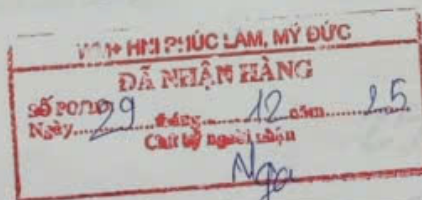 WM+ HNI PHÚC LÂM, MỸ ĐỨC
ĐÃ NHẬN HÀNG
Số PO/
Ngày.....29....tháng.....12...năm.....25
Chữ ký người nhận
Nga